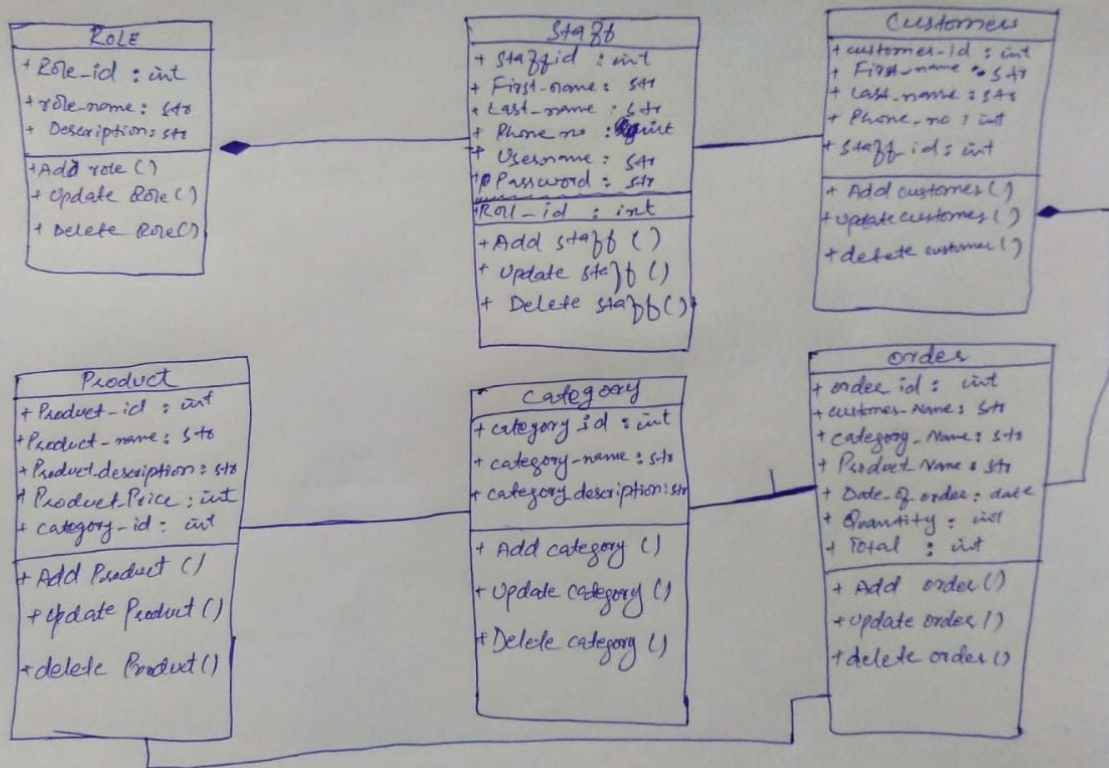 ROLE
+ Role-id : int
+ role-name : str
+ Description : str
+ Add role ()
+ Update Role ()
+ Delete Role ()
Staff
+ Staff id : int
+ First-name : str
+ Last-name : str
+ Phone no : int
+ Username : str
+ Password : str
+ Roll-id : int
+ Add staff ()
+ Update staff ()
+ Delete staff ()
Customer
+ customer-id : int
+ First-name : str
+ Last-name : str
+ Phone-no : int
+ Staff id : int
+ Add customer ()
+ update customer ()
+ delete customer ()
Product
+ Product-id : int
+ Product-name : str
+ Product-description : str
+ Product-Price : int
+ category-id : int
+ Add Product ()
+ Update Product ()
+ delete Product ()
category
+ category-id : int
+ category-name : str
+ category description : str
+ Add category ()
+ Update category ()
+ Delete category ()
order
+ order id : int
+ customer-Name : str
+ category-Name : str
+ Product Name : str
+ Date-of order : date
+ Quantity : int
+ Total : int
+ Add order ()
+ update order ()
+ delete order ()